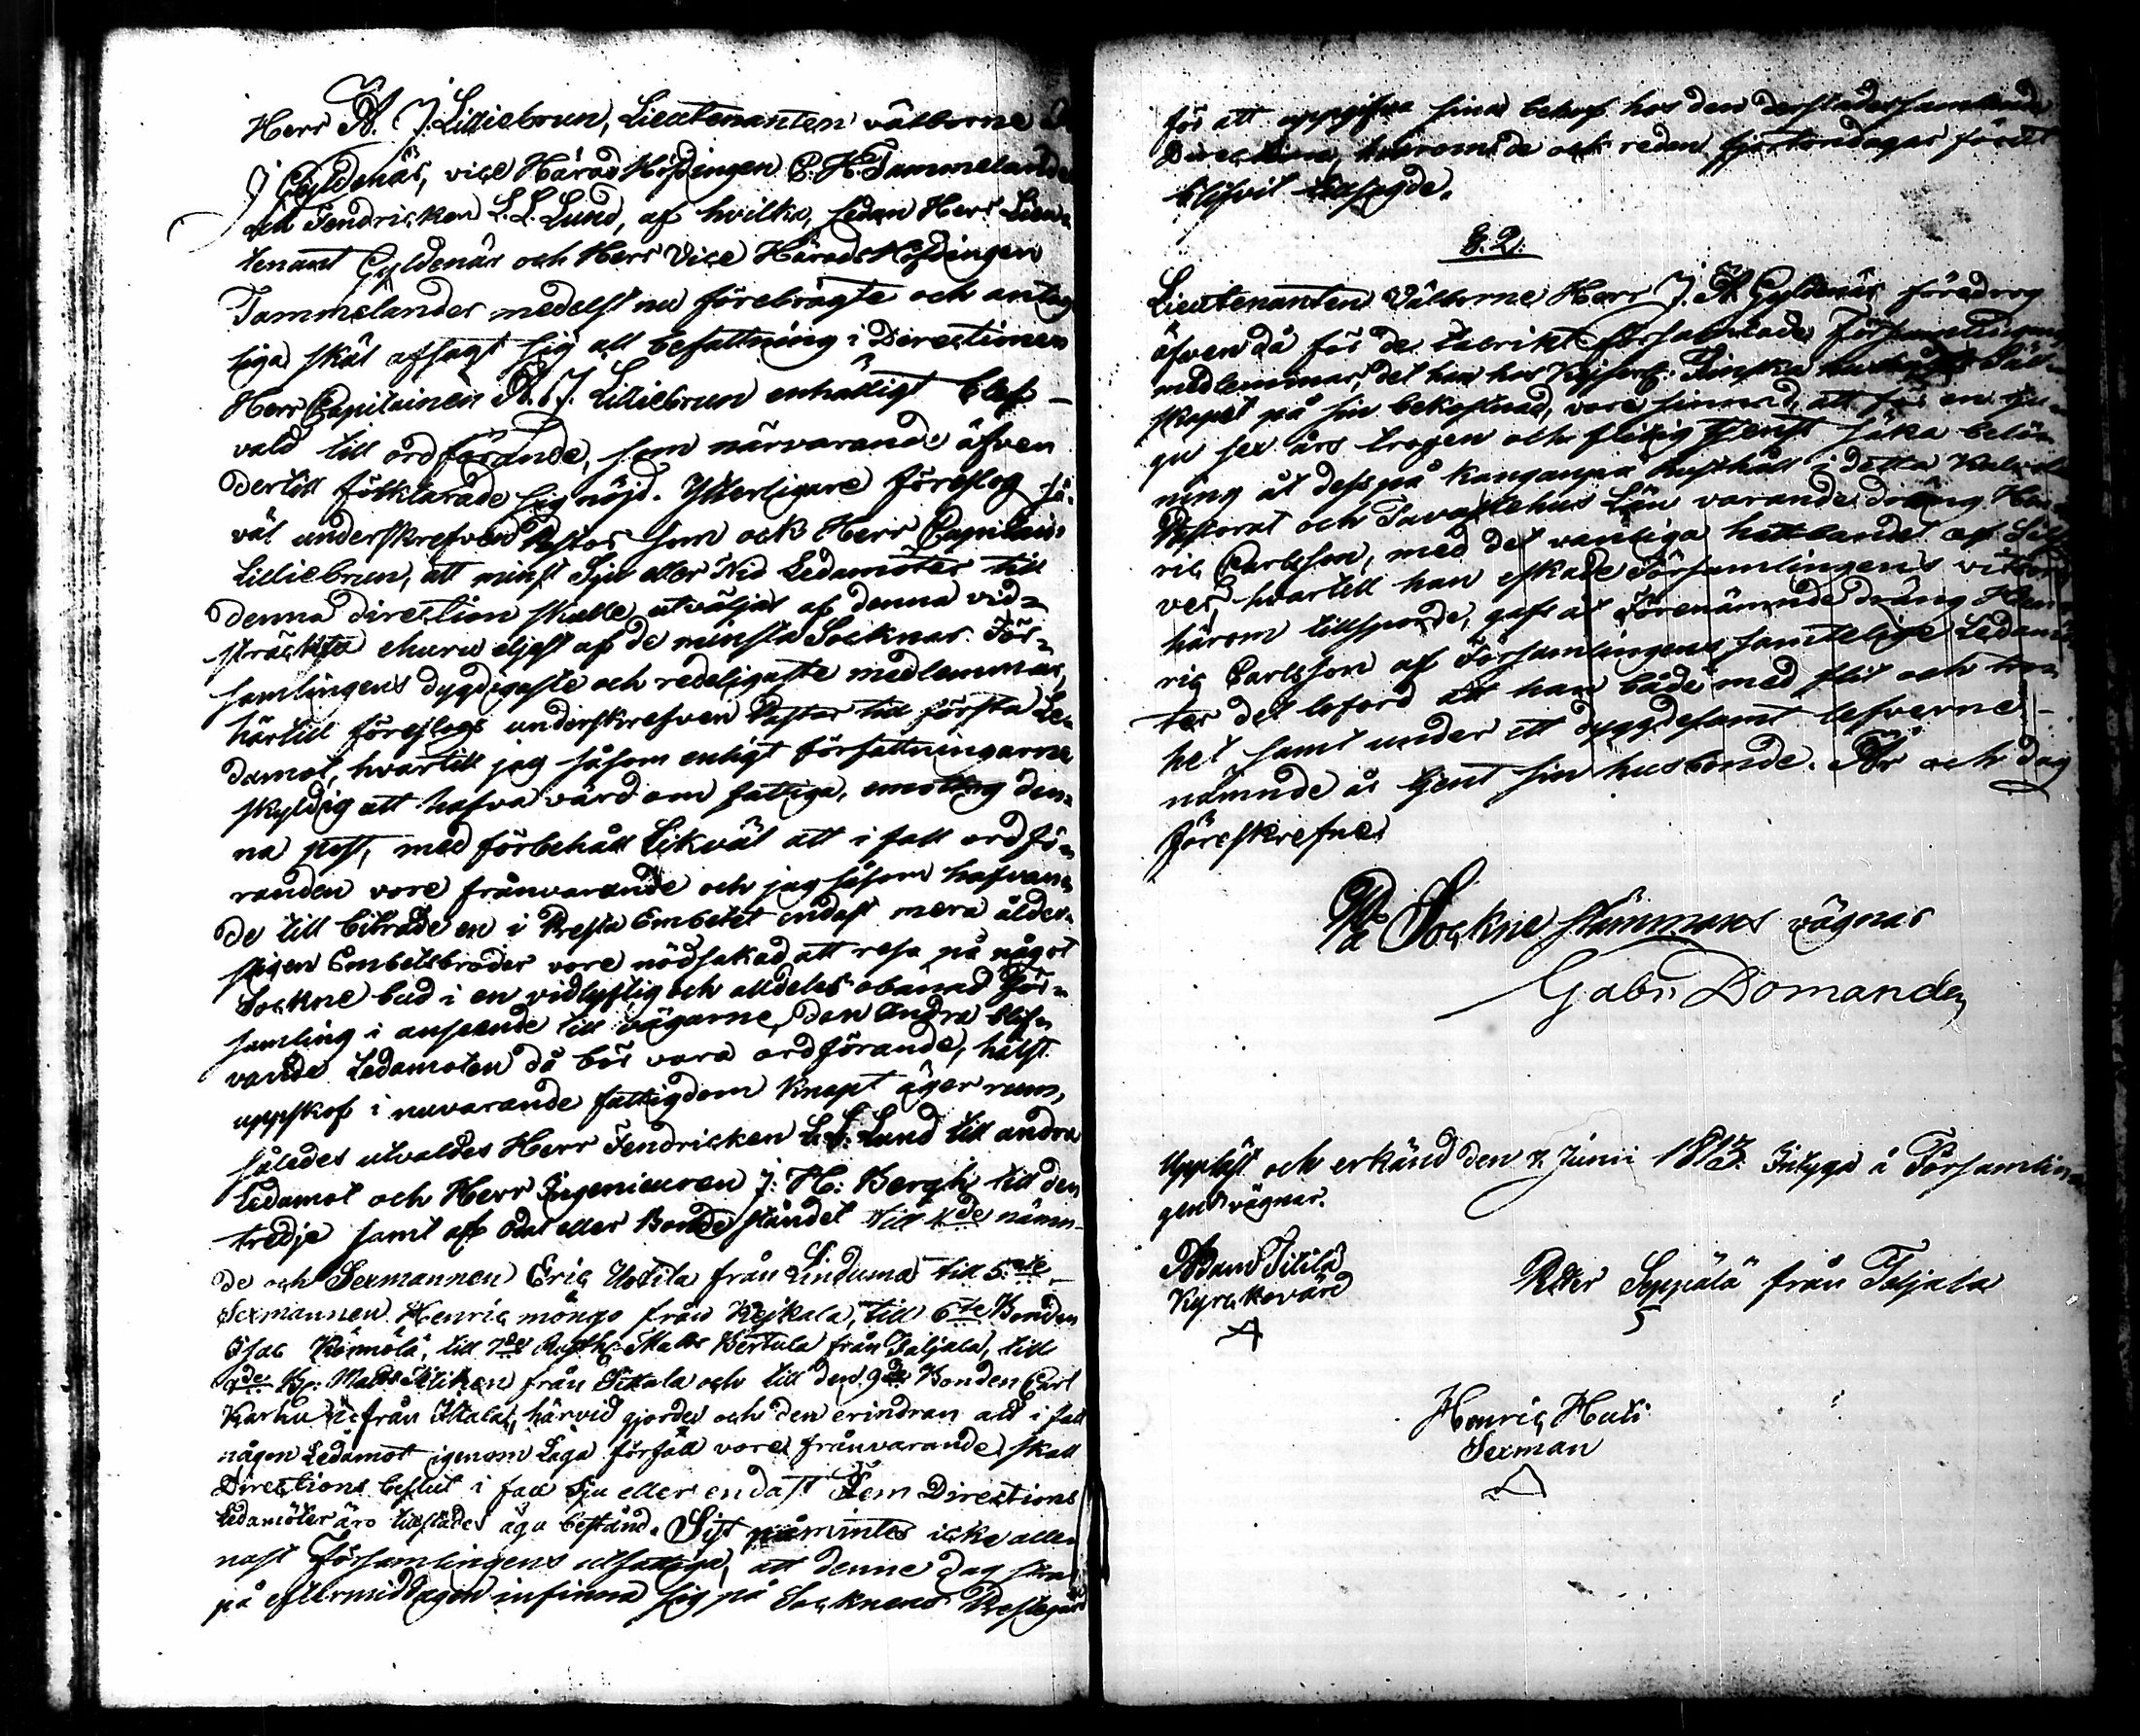 Herr A. J. Lilliebrun, Lieutenanten välborne
J Gyldenär, vice Härads Höfdingen C. H. Tammelander
till Fendricken L. L. Lund, af hvilka, sedan Herr Lieu-
tenant Gyldenär och Herr Vice Härads Höfdingen
Tammelander medelst nu förebragte och antag
liga skäl afsagt sig all befattning i Directionen
Herr Capitainen A. J. Lilliebrun enhälligt blef
vald till ordförande, som närvarande äfven
dertill förklarade sig nöjd. Ytterligare föreslog så-
väl underskrefven Pastor som ock Herr Capitain
Lilliebrun, att minst Sju eller Nio Ledamöter till
denna direction skulle utväljas af denna vid-
sträckta ehuru eljest af de minsta Socknar. För-
samlingens dygdigaste och redeligaste medlemmar,
härtill föreslogs underskrefven Pastor till första Le-
damot, hvartill jag såsom enligt författningarne
skyldig att hafva vård om fattige, emottog den-
na post, med förbehåll likväl att i fall ordfö-
randen vore frånvarande och jag såsom hafvan-
de till biträde en i Presta Embetet endast mera ålder-
stigen Embetsbroder vore nödsakad att resa på något
Sockne bud i en vidlyftig och alldeles obanad För-
samling i anseende till vägarne, den andra blif-
vande Ledamoten då bör vara ordförande, hälst
uppskof i nuvarande fattigdom knapt äger rum,
således utvaldes Herr Fendricken L. L. Lund till andra
Ledamot och Herr Ingenieuren J: H: Bergh till den
tredje samt af Odal eller Bonde ståndet till 4de nämn-
de och Sexmannen Eric Uotila från Linduma till 5:te
Sexmannen Henric möngo från Kejkala, till 6te Bonden
Isac Kärmölä, till 7de Rusth: Matts Bertula från Taljala, till
8de B: Matts Itiken från Sikala och till den 9de Bonden Carl
Karhu från Ittala, härvid gjordes och den erindran att i fall
någon Ledamot igenom Laga förfall vore frånvarande, skall
Directions beslut i fall Sju eller endast Fem Directions
Ledamöter äro tillstädes äga bestånd. Sist påmintes icke alle-
nast Församlingens utfattiga, att denne dag skall
på eftermiddagen infinna sig på Socknens Prestegård
för att uppgifva sina behof hos den derstädes samlande
Direction, hvarom de ock redan fjortondagar förut
blifvit tillsagde.
§. 2.
Lieutenanten Välborne Herr J. A. Gyldenär föredrog
äfven då för de talrikt församlade Församlings
medlemmar, det han hos Kejserl: Finska hushålls Säll-
skapet på sin bekostnad, vore sinnad, att för en tju-
gu sex års trogen och flitig tjenst söka belö-
ning åt dess på Kangaspää rusthåll i detta Kalvola
Pastorat och Tavastehus Län varande dräng Hen-
ric Carlsson, med det vanliga hattbandet af Silf-
ver, hvartill han eskade Församlingens vitsord,
härom tillsporde, gafs åt förenämnde dräng Hen-
ric Carlsson af Församlingens samtelige Ledamö-
ter det loford att han både med flit och tro-
het samt under ett dygdesamt lefverne
nämnde år tjent sin husbonde. År och dag
föreskrefne.
På Sockne stämmans vägnar
Gabr. Domander
Uppläst och erkänd den 7. Junii 1813. Intyga å Församlin-
gens vägnar.
Adam Titila
Kyrckovärd
Petter Seppälä från Taljala
Henric Huti
Sexman